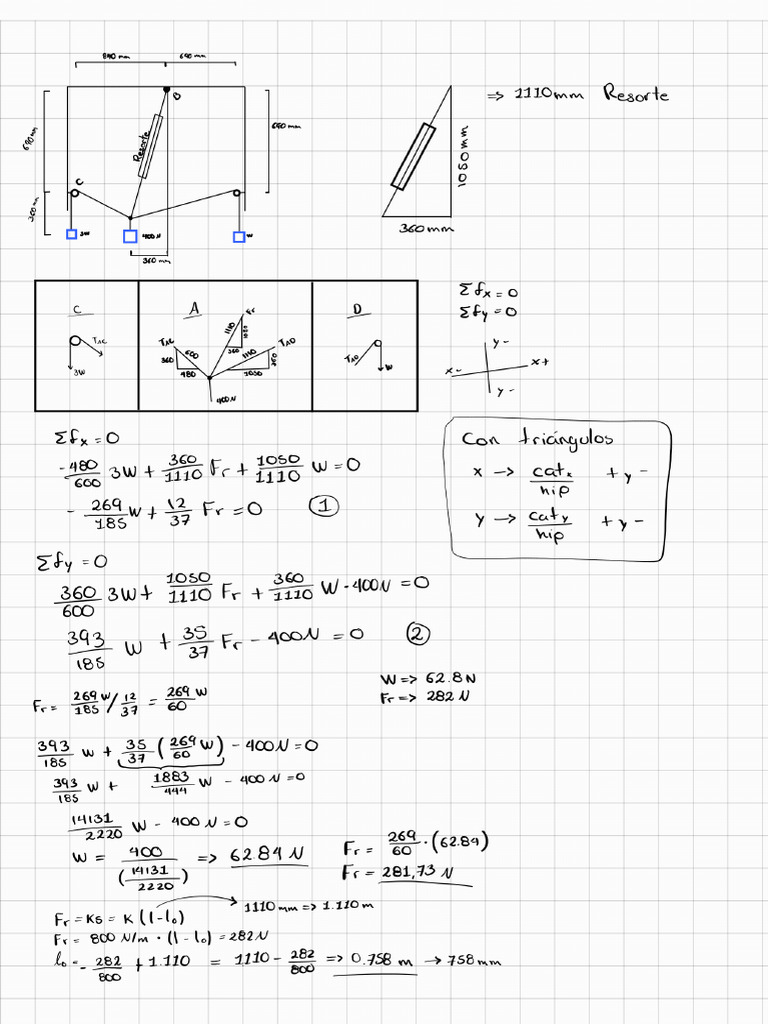 840 mm 690 mm
B
⇒ 1110mm Resorte
690 mm
Resorte
1050 mm
C
360 mm
3W 400 N W
360 mm
360 mm
C A D
Fr
1110
1050
360
TAC
TAC 600
360
480
1110 TAD
360
1050
400 N
3W
TAD W
Σfx = 0
Σfy = 0
y-
x- x+
y-
Σfx = 0
-480/600 3W + 360/1110 Fr + 1050/1110 W = 0
- 269/185 W + 12/37 Fr = 0 ①
Con triángulos
x → catx/hip + y -
y → caty/hip + y -
Σfy = 0
360/600 3W + 1050/1110 Fr + 360/1110 W - 400N = 0
393/185 W + 35/37 Fr - 400N = 0 ②
W => 62.8 N
Fr => 282 N
Fr = 269W/185 / 12/37 = 269W/60
393/185 W + 35/37 (269/60 W) - 400N = 0
393/185 W + 1883/444 W - 400 N = 0
14131/2220 W - 400 N = 0
W = 400/(14131/2220) => 62.84 N
Fr = 269/60 · (62.84)
Fr = 281,73 N
1110 mm => 1.110 m
Fr = Ks = K (l - lo)
Fr = 800 N/m · (l - lo) = 282N
lo = - 282/800 + 1.110 = 1110 - 282/800 => 0.758 m → 758 mm